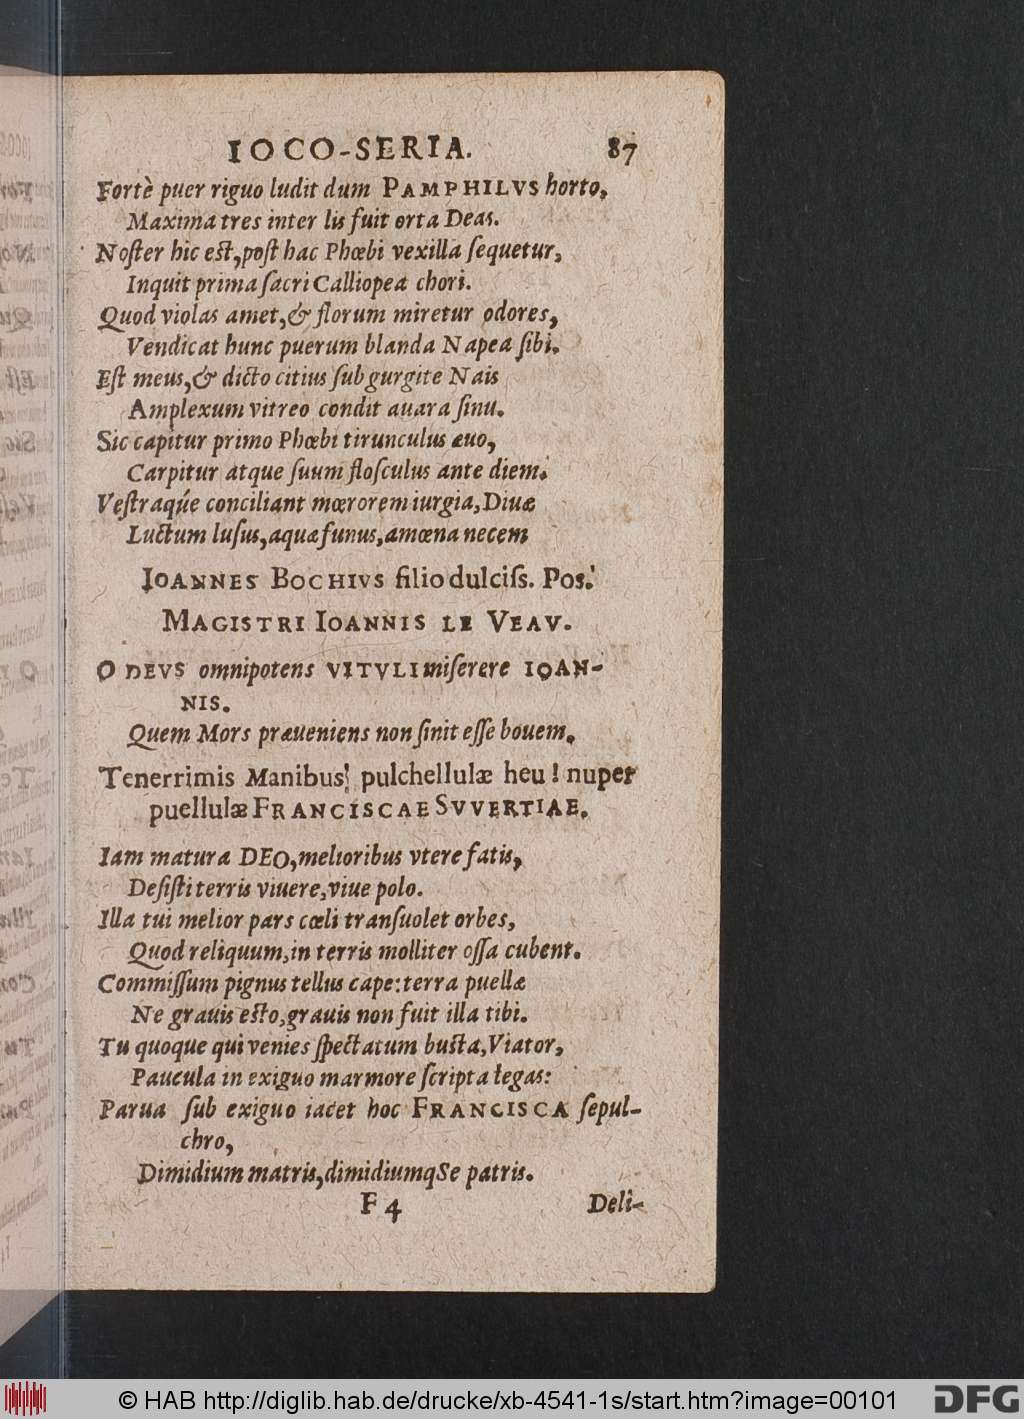 IOCO-SERIA. 87
Fortè puer riguo ludit dum PAMPHILVS horto,
Maxima tres inter lis fuit orta Deas.
Noſter hic eſt, poſt hac Phœbi vexilla ſequetur,
Inquit prima ſacri Calliopea chori.
Quod violas amet, & florum miretur odores,
Vendicat hunc puerum blanda Napea ſibi.
Eſt meus, & dicto citius ſub gurgite Nais
Amplexum vitreo condit auara ſinu.
Sic capitur primo Phœbi tirunculus æuo,
Carpitur atque ſuum floſculus ante diem.
Veſtraq́ue conciliant mœrorem iurgia, Diuæ
Luctum luſus, aquæ funus, amœna necem
IOANNES BOCHIVS filio dulciſs. Pos.
MAGISTRI IOANNIS LE VEAV.
O DEVS omnipotens VITVLI miſerere IOAN-
NIS.
Quem Mors præueniens non ſinit eſſe bouem.
Tenerrimis Manibus! pulchellulæ heu! nuper
puellulæ FRANCISCAE SVVERTIAE.
Iam matura DEO, melioribus vtere fatis,
Deſiſti terris viuere, viue polo.
Illa tui melior pars cœli tranſuolet orbes,
Quod reliquum, in terris molliter oſſa cubent.
Commiſſum pignus tellus cape: terra puellæ
Ne grauis eſto, grauis non fuit illa tibi.
Tu quoque qui venies ſpectatum buſta, Viator,
Paucula in exiguo marmore ſcripta legas:
Parua ſub exiguo iacet hoc FRANCISCA ſepul-
chro,
Dimidium matris, dimidiumqSe patris.
F 4 Deli-
© HAB http://diglib.hab.de/drucke/xb-4541-1s/start.htm?image=00101 DFG